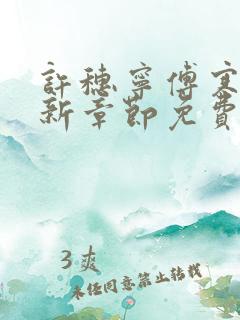 許穗寧傅寒
新章節免費
3爽
未经同意禁止转载